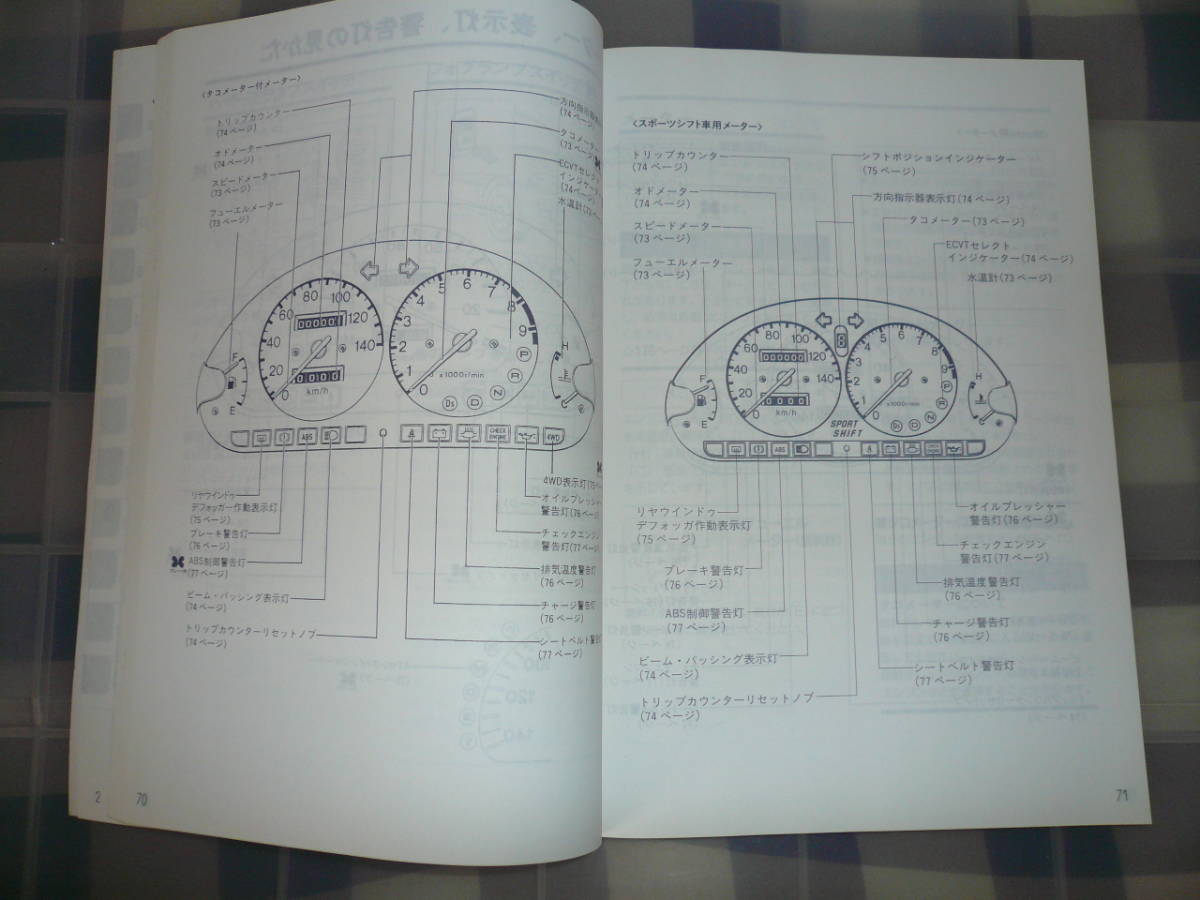 〈タコメーター付メーター〉
トリップカウンター
(74ページ)
オドメーター
(74ページ)
スピードメーター
(73ページ)
フューエルメーター
(73ページ)
方向指示器
(74ページ)
タコメーター
(73ページ)
ECVTセレクト
インジケーター
(74ページ)
水温計(73ペー
0 20 40 60 80 100 120 140
km/h
0 1 2 3 4 5 6 7 8 9
x1000r/min
P R N D Ds
F
E
H
C
ABS
CHECK ENGINE
4WD
リヤウインドゥ
デフォッガー作動表示灯
(75ページ)
ブレーキ警告灯
(76ページ)
ABS制御警告灯
(77ページ)
ビーム・パッシング表示灯
(74ページ)
トリップカウンターリセットノブ
(74ページ)
4WD表示灯(75ペー
オイルプレッシャー
警告灯(76ペー
チェックエンジン
警告灯(77ページ)
排気温度警告灯
(76ページ)
チャージ警告灯
(76ページ)
シートベルト警告
(77ページ)
2
70
〈スポーツシフト車用メーター〉
トリップカウンター
(74ページ)
オドメーター
(74ページ)
スピードメーター
(73ページ)
フューエルメーター
(73ページ)
シフトポジションインジケーター
(75ページ)
方向指示器表示灯(74ページ)
タコメーター(73ページ)
ECVTセレクト
インジケーター(74ページ)
水温計(73ページ)
0 20 40 60 80 100 120 140
km/h
0 1 2 3 4 5 6 7 8 9
x1000r/min
P R N D Ds
F
E
H
C
SPORT
SHIFT
ABS
リヤウインドゥ
デフォッガ作動表示灯
(75ページ)
ブレーキ警告灯
(76ページ)
ABS制御警告灯
(77ページ)
ビーム・パッシング表示灯
(74ページ)
トリップカウンターリセットノブ
(74ページ)
オイルプレッシャー
警告灯(76ページ)
チェックエンジン
警告灯(77ページ)
排気温度警告灯
(76ページ)
チャージ警告灯
(76ページ)
シートベルト警告灯
(77ページ)
71